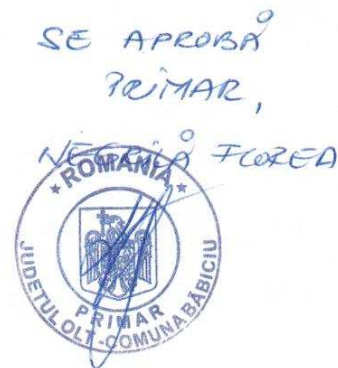 SE APROBĂ
PRIMAR,
NEGRILĂ FLOREA
* ROMÂNIA *
JUDEȚUL OLT - COMUNA BĂBICIU
PRIMAR